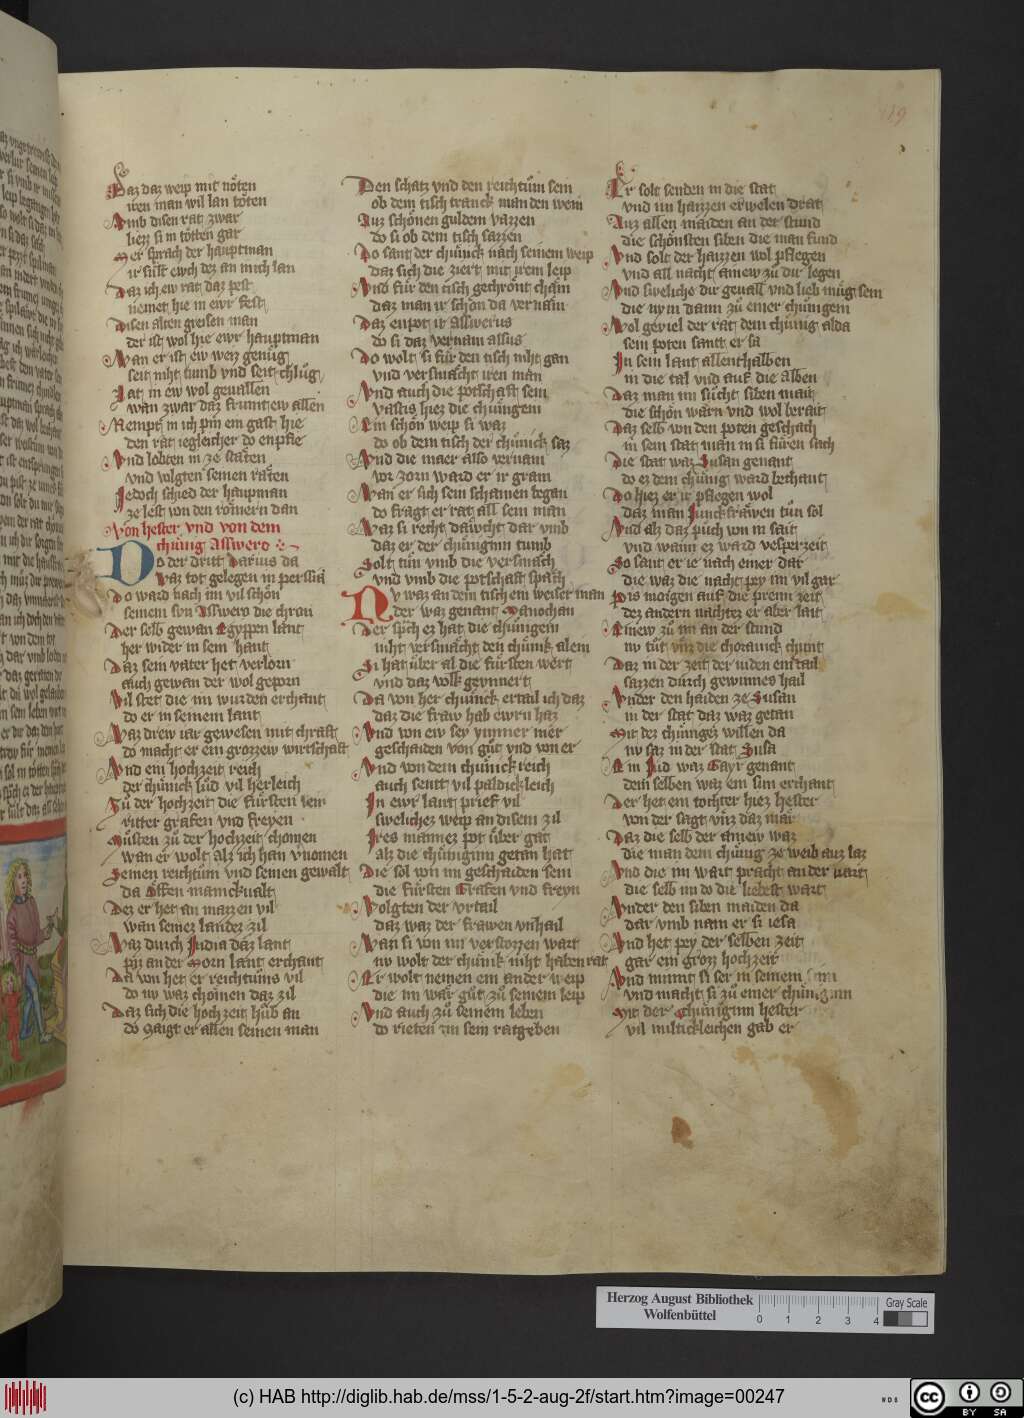 119
Daz daz weip mit nöten
wen man wil lan töten
Amb disen rat zwar
liezz si in tötten gar
Mer sprach der hauptman
ir süllt ewch dez an mich lan
Daz ich ew rat daz pest
nemet hie in ewr fest
Disen alten greisen man
der ist wol hie ewr hauptman
Wan er ist ew weiz genüg
seit niht tumb vnd seit chlüg
Lat in ew wol geuallen
wan zwar daz frumt ew allen
Nempt in ich pin ein gast hie
den rat iegleicher do enpfie
Vnd lobten in ze staten
vnd volgten seinen räten
Jedoch schied der haupman
ze lest von den römern dan
Von hester vnd von dem
chünig Asswero
Do der dritt Darius da
Waz tot gelegen in perssia
Do ward nach im vil schön
seinem sun Asswero die chron
Der selb gewan Egyppen lant
her wider in sein hant
Daz sein vater het verlorn
auch gewan der wol geporn
Vil stet die im wurden erchant
do er in seinem lant
Waz drew iar gewesen mit chraft
do macht er ein grozzew wirtschaft
Vnd ein hochzeit reich
der chünick lüd vil herleich
Zü der hochzeit die fürsten sein
ritter grafen vnd freyen
Müsten zü der hochzeit chomen
wan er wolt alz ich han vnomen
Seinen reichtüm vnd seinen gewalt
da Offen manickualt
Dez er het an mazzen vil
wan seinez landez zil
Waz durch India daz lant
pis an der Morn lant erchant
Da von het er reichtüms vil
do nv waz chomen daz zil
Daz sich die hochzeit hüb an
do Zaigt er allen seinen man
Den schatz vnd den reichtüm sein
ob dem tisch tranck man den wein
Auz schönen guldein vazzen
do si ob dem tisch sazzen
Do sant der chünick nach seinem weip
daz sich die ziert mit irem leip
Vnd für den tisch gechrönt chäm
daz man ir schön da vernäm
Daz enpot ir Asswerus
do si daz vernam alsus
Do wolt si für den tisch niht gan
vnd versmächt iren man
Vnd auch die potschaft sein
vastis hiez die chünigein
Ein schön weip si waz
do ob dem tisch der chünick saz
Vnd die maer also vernam
vor zorn ward er ir gram
Wan er sich sein schamen began
do fragt er rat all sein man
Waz si recht dawcht dar vmb
daz er der chüniginn tumb
Solt tün vmb die versmach
vnd vmb die potschaft sprach
Nv waz an dem tisch ein weiser man
der waz genant Manochan
Der sprach ez hat die chünigein
niht versmächt den chünik alein
Si hat über al die fürsten wert
vnd daz volk gevnnert
Da von her chünick ertail ich daz
daz die fraw hab ewrn haz
Vnd von ew sey ymmer mer
geschaiden von güt vnd von er
Vnd von dem chünick reich
auch sentt vil paldickleich
In ewr lant prief vil
swelichez weip an disem zil
Ires mannez pot über gat
alz die chüniginn getan hat
Die sol von im geschaiden sein
die fürsten Grafen vnd freyn
Volgten der vrtail
daz waz der frawen vnhail
Wan si von im verstozzen wart
nv wolt der chünik niht haben rat
Er wolt nemen ein ander weip
die im wär güt zü seinem leip
Vnd auch zü seinem leben
do rieten im sein ratgeben
Er solt senden in die stat
vnd im haizzen erwelen drat
Auz allen maiden an der stund
die schönsten siben die man fund
Vnd solt der haizzen wol pflegen
vnd all nacht ainew zü dir legen
Vnd sweliche dir geuall vnd lieb müg sein
die nym dann zü einer chünigein
Wol geviel der rat dem chünig alda
sein poten santt er sa
In sein lant allenthalben
in die tal vnd auf die alben
Daz man im sücht siben mait
die schön wärn vnd wol berait
Daz selb von den poten geschach
in sein stat man in si füren sach
Die stat waz Susan genant
do ez dem chünig ward bechant
Do hiez er ir pflegen wol
daz man Junckfrawen tün sol
Vnd alz daz püch von in sait
vnd wann ez ward vesperzeit
So sant er ie nach einer dar
die waz die nacht pey im vil gar
Pis morgen auf die prenn zeit
dez andern nachtez er aber lait
Ainew zü im an der stund
nv tüt vnz die choranick chunt
Daz in der zeit der iuden ein tail
sazzen dürch gewinnes hail
Vnder den haiden ze Susan
in der stat daz waz getan
Mit dez chünigez willen da
nv saz in der stat Susa
Ein Jüd waz Gayr genant
dem selben waz ein sün erchant
Der het ein tochter hiez hester
von der sagt vnz daz mär
Daz die selb der ainew waz
die man dem chünig ze weib auz laz
Vnd die im wart pracht an der vart
die selb im do die liebest wart
Vnder den siben maiden da
dar vmb nam er si iesa
Vnd het pey der selben zeit
gar ein groz hochzeit
Vnd nimmt si ser in seinem sin
vnd macht si zü einer chüniginn
Mit der Chüniginn hester
vil miltickleichen gab er
Herzog August Bibliothek
Wolfenbüttel
Gray Scale
0 1 2 3 4
(c) HAB http://diglib.hab.de/mss/1-5-2-aug-2f/start.htm?image=00247
cc BY SA